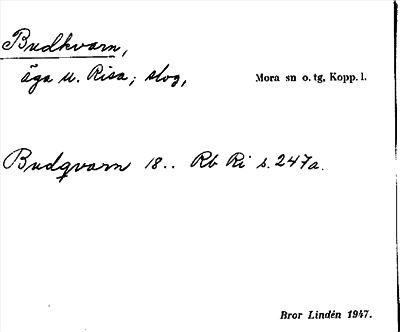 Budkvarn,
äga u. Risa; slog, Mora sn o. tg, Kopp. l.
Budqvarn 18.. Rb Ri s. 247a.
Bror Lindén 1947.